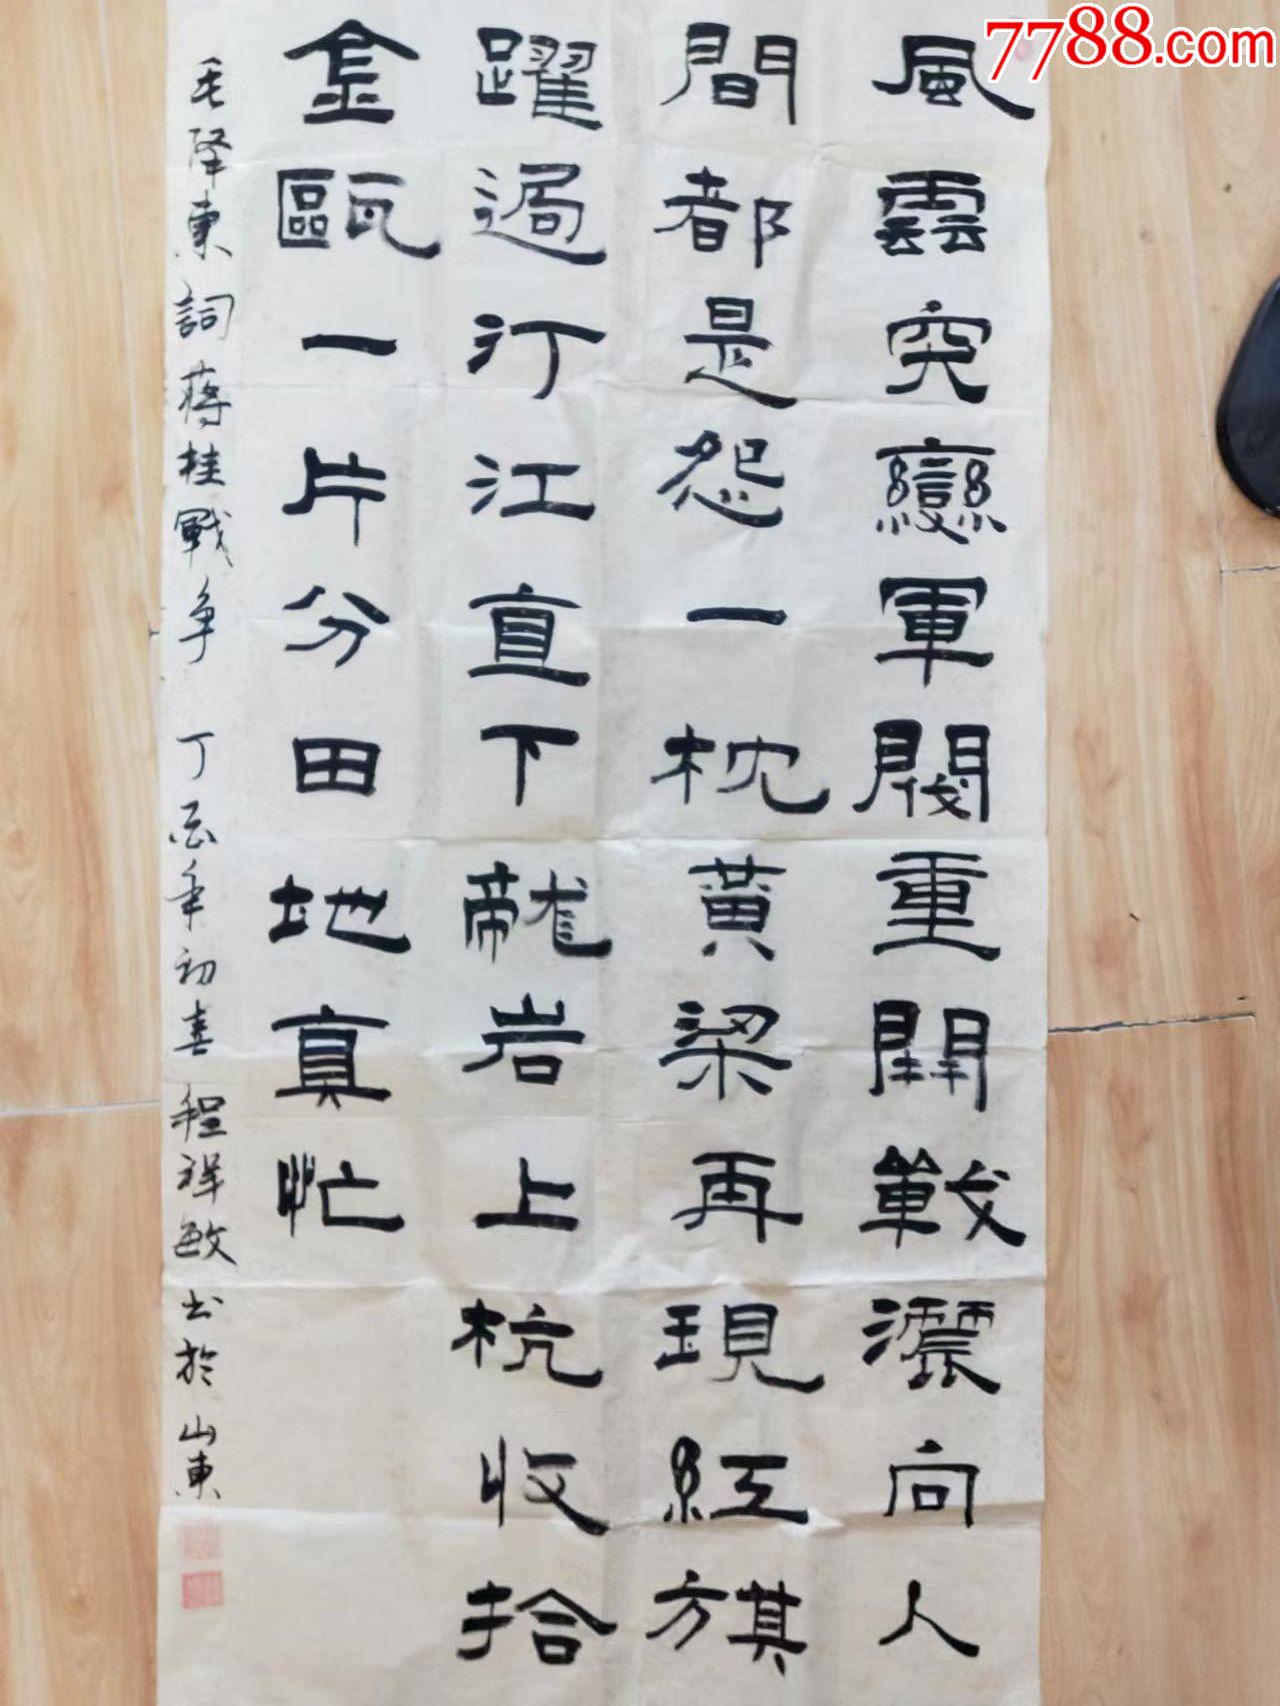 7788.com
風雲突變軍閥重開戰灑向人
間都是怨一枕黃粱再現紅旗
躍過汀江直下龍岩上杭收拾
金甌一片分田地真忙
毛澤東詞蔣桂戰争 丁酉年初春程祥敏书於山東